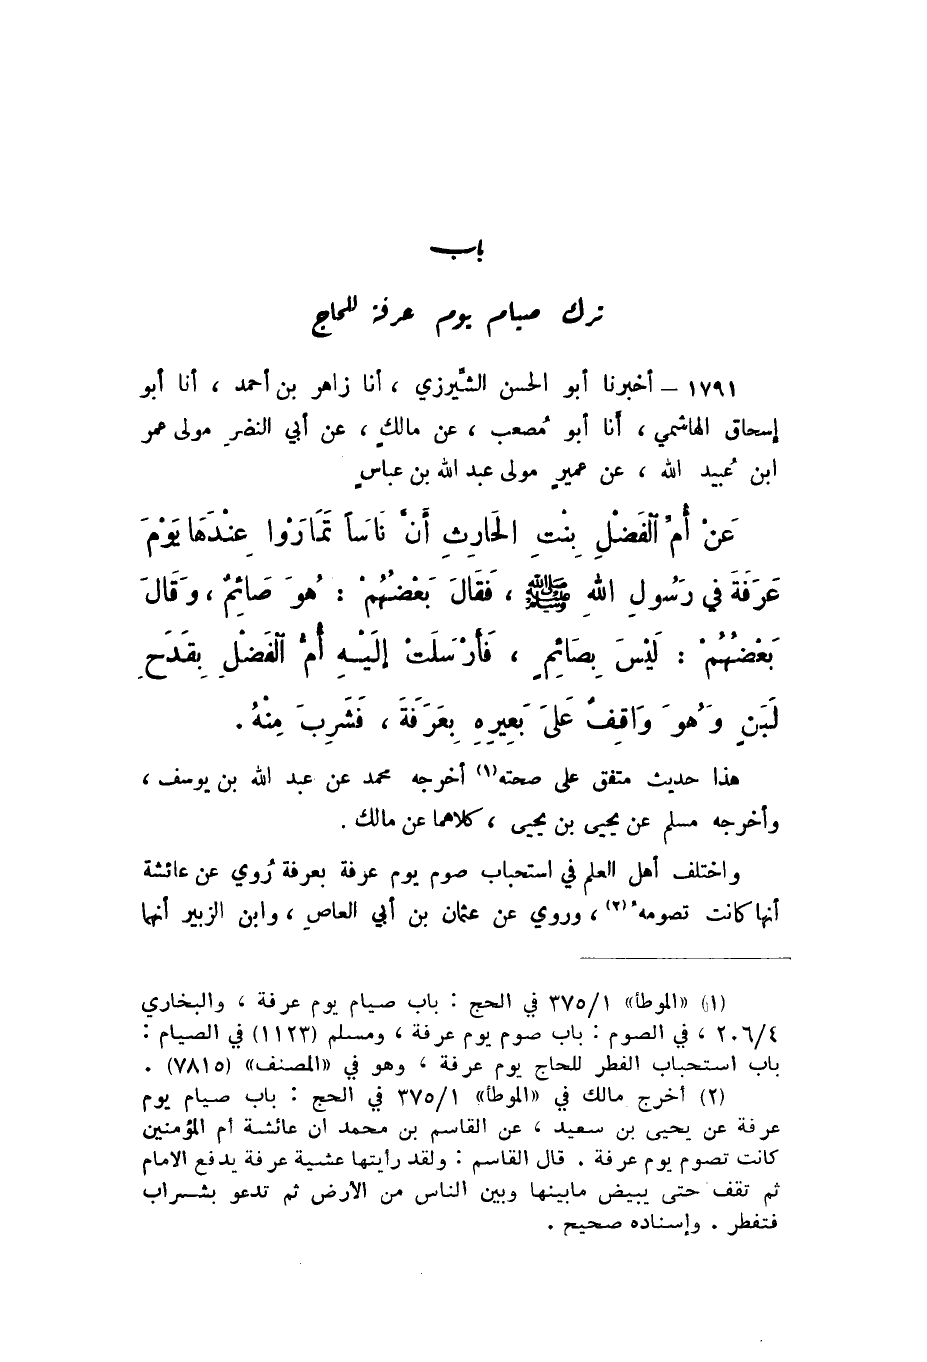 باب
ترك صيام يوم عرفة للحاج
١٧٩١ – أخبرنا أبو الحسن الشِّيرزي ، أنا زاهر بن أحمد ، أنا أبو
إسحاق الهاشمي ، أنا أبو مُصعب ، عن مالكٍ ، عن أبي النضرِ مولى عمر
ابن عُبيد الله ، عن عميرٍ مولى عبد الله بن عباسٍ
عَنْ أُمِّ الْفَضْلِ بِنْتِ الحَارِثِ أَنَّ نَاسَاً تَمَارَوْا عِنْدَهَا يَوْمَ
عَرَفَةَ فِي رَسُولِ اللهِ ﷺ ، فَقَالَ بَعْضُهُمْ : هُوَ صَائِمٌ ، وَقَالَ
بَعْضُهُمْ : لَيْسَ بِصَائِمٍ ، فَأَرْسَلَتْ إِلَيْهِ أُمُّ الْفَضْلِ بِقَدَحِ
لَبَنٍ وَهُوَ وَاقِفٌ عَلَى بَعِيرِهِ بِعَرَفَةَ ، فَشَرِبَ مِنْهُ .
هذا حديث متفق على صحته(١) أخرجه محمد عن عبد الله بن يوسف ،
وأخرجه مسلم عن يحيى بن يحيى ، كلاهما عن مالك .
واختلف أهل العلم في استحباب صوم يوم عرفة بعرفة رُوي عن عائشة
أنها كانت تصومه(٢) ، وروي عن عثمان بن أبي العاصِ ، وابن الزبير أنها
(١) «الموطأ» ٣٧٥/١ في الحج : باب صيام يوم عرفة ، والبخاري
٢٠٦/٤ ، في الصوم : باب صوم يوم عرفة ، ومسلم (١١٢٣) في الصيام :
باب استحباب الفطر للحاج يوم عرفة ، وهو في «المصنف» (٧٨١٥) .
(٢) أخرج مالك في «الموطأ» ٣٧٥/١ في الحج : باب صيام يوم
عرفة عن يحيى بن سعيد ، عن القاسم بن محمد ان عائشة أم المؤمنين
كانت تصوم يوم عرفة . قال القاسم : ولقد رأيتها عشية عرفة يدفع الامام
ثم تقف حتى يبيض مابينها وبين الناس من الأرض ثم تدعو بشراب
فتفطر . وإسناده صحيح .